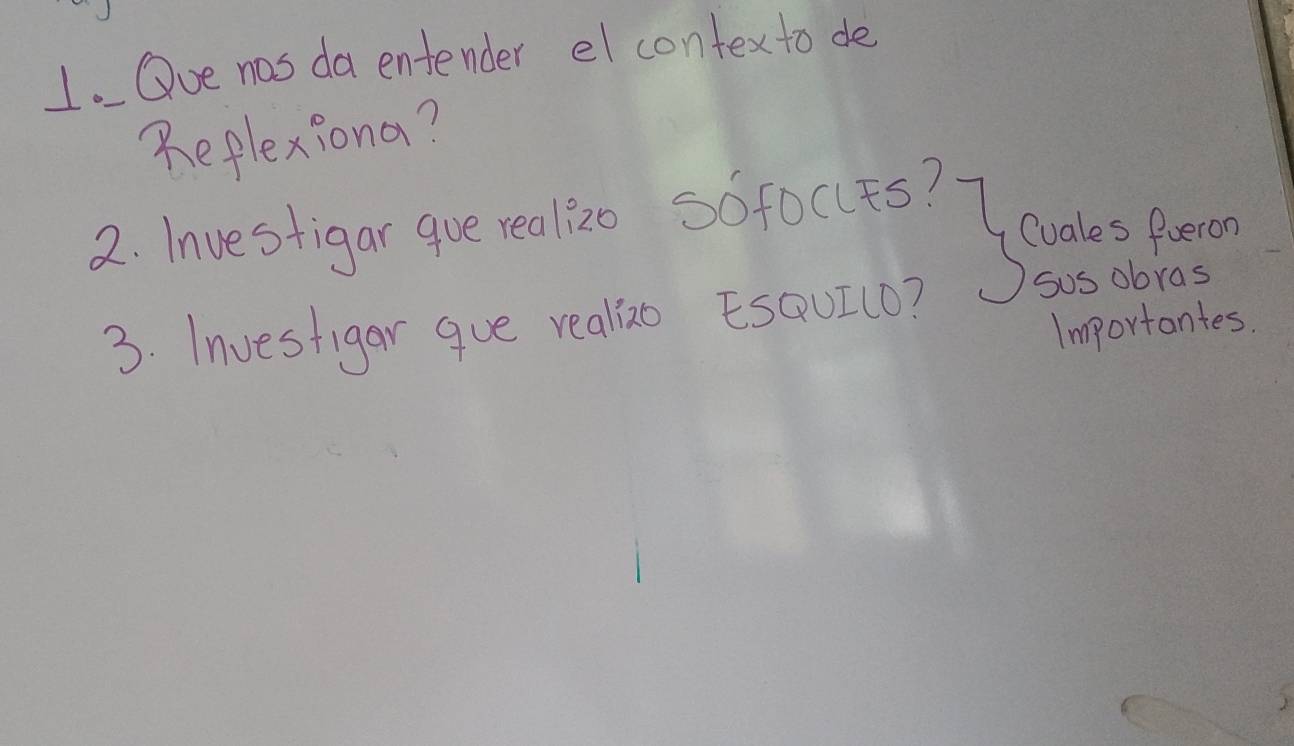 1.- Que nos da entender el contexto de
Reflexiona?
2. Investigar que realizo SÓFOCLES?
3. Investigar que realizo ESQUILO?
Cuales fueron
sus obras
Importantes.